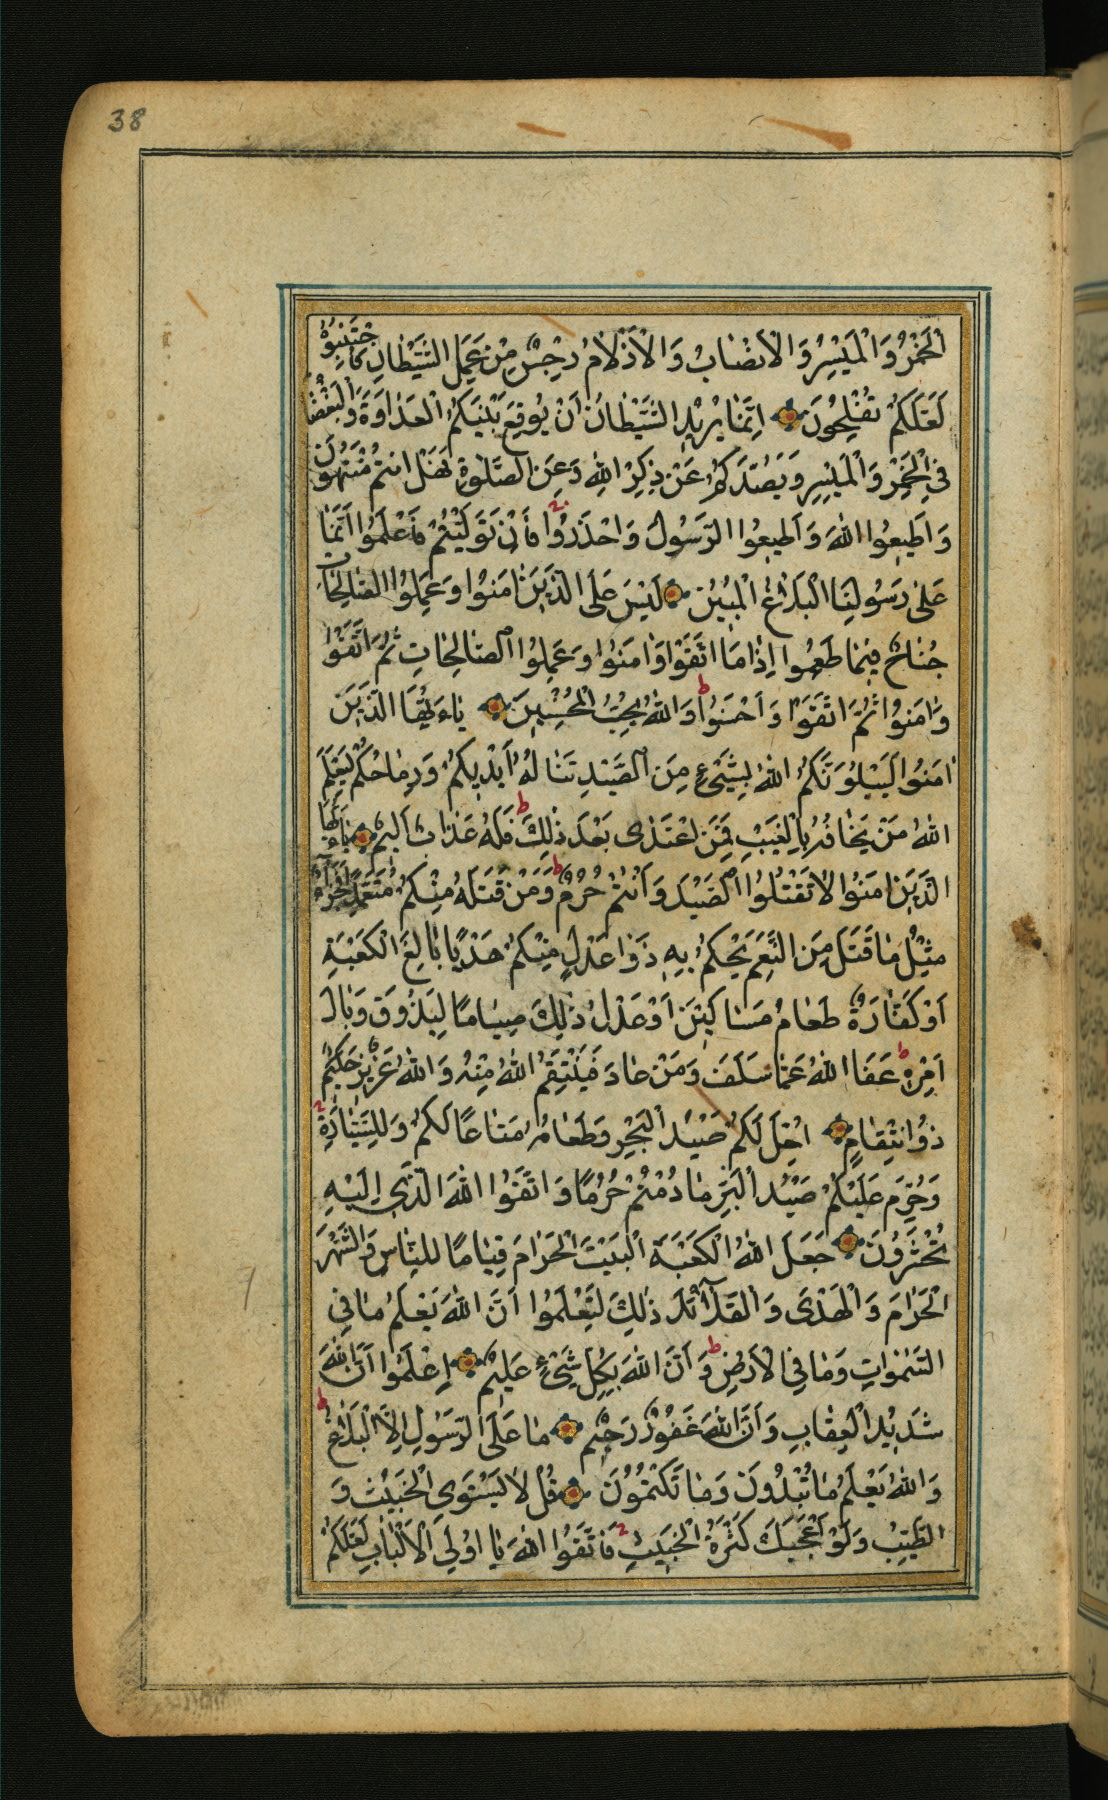 38
الْخَمْرُ وَالْمَيْسِرُ وَالْاَنْصَابُ وَالْاَزْلَامُ رِجْسٌ مِنْ عَمَلِ الشَّيْطَانِ فَاجْتَنِبُوهُ
لَعَلَّكُمْ تُفْلِحُونَ اِنَّمَا يُرِيدُ الشَّيْطَانُ اَنْ يُوقِعَ بَيْنَكُمُ الْعَدَاوَةَ وَالْبَغْضَاءَ
فِي الْخَمْرِ وَالْمَيْسِرِ وَيَصُدَّكُمْ عَنْ ذِكْرِ اللّٰهِ وَعَنِ الصَّلٰوةِ فَهَلْ اَنْتُمْ مُنْتَهُونَ
وَاَطِيعُوا اللّٰهَ وَاَطِيعُوا الرَّسُولَ وَاحْذَرُوا فَاِنْ تَوَلَّيْتُمْ فَاعْلَمُوا اَنَّمَا
عَلٰى رَسُولِنَا الْبَلَاغُ الْمُبِينُ لَيْسَ عَلَى الَّذِينَ اٰمَنُوا وَعَمِلُوا الصَّالِحَاتِ
جُنَاحٌ فِيمَا طَعِمُوا اِذَا مَا اتَّقَوْا وَاٰمَنُوا وَعَمِلُوا الصَّالِحَاتِ ثُمَّ اتَّقَوْا
وَاٰمَنُوا ثُمَّ اتَّقَوْا وَاَحْسَنُوا وَاللّٰهُ يُحِبُّ الْمُحْسِنِينَ يَاءَيُّهَا الَّذِينَ
اٰمَنُوا لَيَبْلُوَنَّكُمُ اللّٰهُ بِشَيْءٍ مِنَ الصَّيْدِ تَنَالُهُ اَيْدِيكُمْ وَرِمَاحُكُمْ لِيَعْلَمَ
اللّٰهُ مَنْ يَخَافُهُ بِالْغَيْبِ فَمَنِ اعْتَدٰى بَعْدَ ذٰلِكَ فَلَهُ عَذَابٌ اَلِيمٌ يَاءَيُّهَا
الَّذِينَ اٰمَنُوا لَا تَقْتُلُوا الصَّيْدَ وَاَنْتُمْ حُرُمٌ وَمَنْ قَتَلَهُ مِنْكُمْ مُتَعَمِّدًا فَجَزَاءٌ
مِثْلُ مَا قَتَلَ مِنَ النَّعَمِ يَحْكُمُ بِهِ ذَوَا عَدْلٍ مِنْكُمْ هَدْيًا بَالِغَ الْكَعْبَةِ
اَوْ كَفَّارَةٌ طَعَامُ مَسَاكِينَ اَوْ عَدْلُ ذٰلِكَ صِيَامًا لِيَذُوقَ وَبَالَ
اَمْرِهِ عَفَا اللّٰهُ عَمَّا سَلَفَ وَمَنْ عَادَ فَيَنْتَقِمُ اللّٰهُ مِنْهُ وَاللّٰهُ عَزِيزٌ حَكِيمٌ
ذُو انْتِقَامٍ اُحِلَّ لَكُمْ صَيْدُ الْبَحْرِ وَطَعَامُهُ مَتَاعًا لَكُمْ وَلِلسَّيَّارَةِ
وَحُرِّمَ عَلَيْكُمْ صَيْدُ الْبَرِّ مَا دُمْتُمْ حُرُمًا وَاتَّقُوا اللّٰهَ الَّذِي اِلَيْهِ
تُحْشَرُونَ جَعَلَ اللّٰهُ الْكَعْبَةَ الْبَيْتَ الْحَرَامَ قِيَامًا لِلنَّاسِ وَالشَّهْرَ
الْحَرَامَ وَالْهَدْيَ وَالْقَلَآئِدَ ذٰلِكَ لِتَعْلَمُوا اَنَّ اللّٰهَ يَعْلَمُ مَا فِي
السَّمٰوَاتِ وَمَا فِي الْاَرْضِ وَاَنَّ اللّٰهَ بِكُلِّ شَيْءٍ عَلِيمٌ اِعْلَمُوا اَنَّ اللّٰهَ
شَدِيدُ الْعِقَابِ وَاَنَّ اللّٰهَ غَفُورٌ رَحِيمٌ مَا عَلَى الرَّسُولِ اِلَّا الْبَلَاغُ
وَاللّٰهُ يَعْلَمُ مَا تُبْدُونَ وَمَا تَكْتُمُونَ قُلْ لَا يَسْتَوِي الْخَبِيثُ وَ
الطَّيِّبُ وَلَوْ اَعْجَبَكَ كَثْرَةُ الْخَبِيثِ فَاتَّقُوا اللّٰهَ يَا اُولِي الْاَلْبَابِ لَعَلَّكُمْ